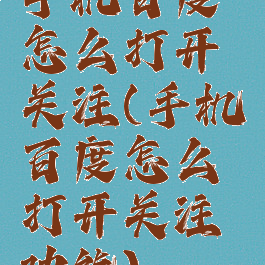 手机百度
怎么打开
关注(手机
百度怎么
打开关注
功能)